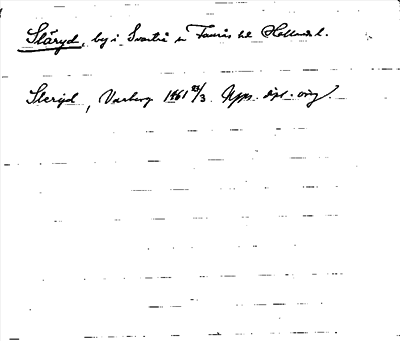 Släryd, by i Svartrå sn Faurås hd Halland l.
Sleryd, Varberg 1461 23/3. Upps. dipl. orig.